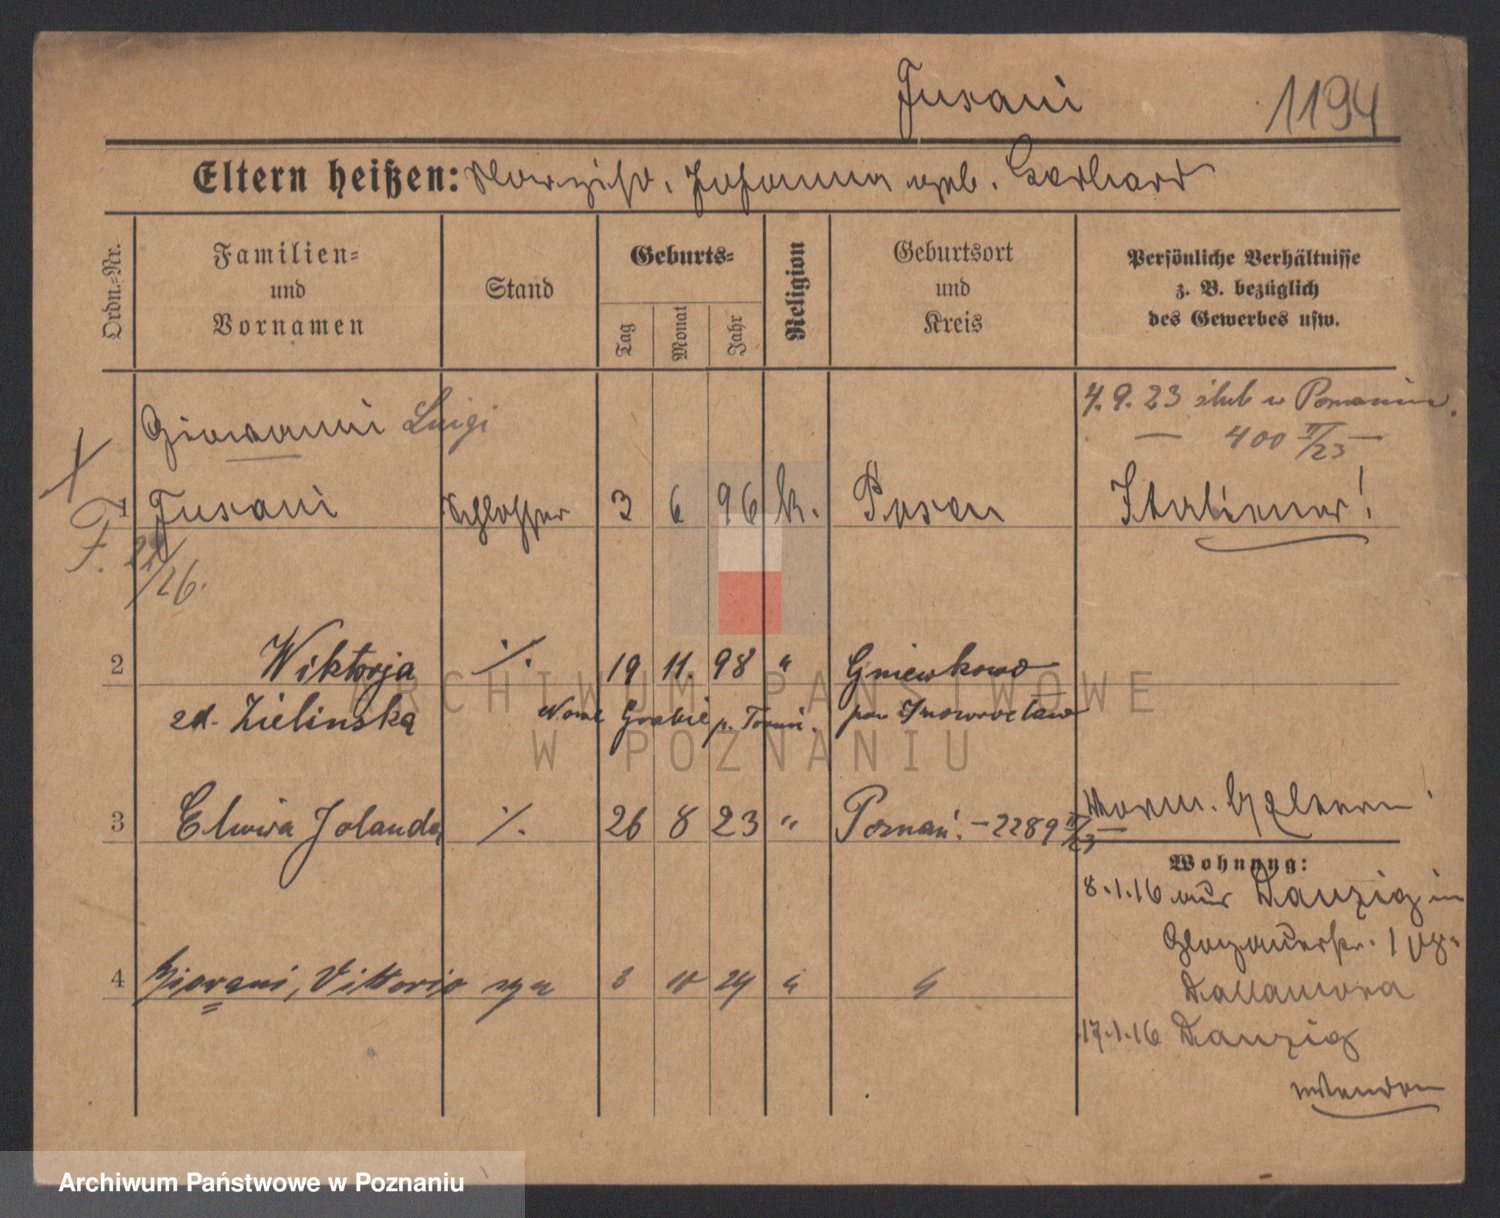 Fusani
1194
Eltern heißen: Narziso, Johanna geb. Gerhard
Ordn.-Nr.
Familien-
und
Vornamen
Stand
Geburts-
Tag
Monat
Jahr
Religion
Geburtsort
und
Kreis
Persönliche Verhältnisse
z. B. bezüglich
des Gewerbes usw.
4.9.23 ślub w Poznaniu.
— 400 II/23 —
Giovanni Luigi
1 Fusani Schlosser 3 6 96 k. Posen Italiener!
F. 22/26.
2 Wiktorja ·/. 19 11. 98 " Gniewkowo
zd. Zielinska Nowe Grabie p. Toruń. pow Inowrocław
3 Elwira Jolanda ·/. 26 8 23 " Poznań. - 2289 II/23 —
b/ Eltern
Wohnung:
8.1.16 aus Danzig in
Glogauerstr. 1
Dallamora
4 Giovani, Vittorio syn 8 10 24 " "
17.1.16 Danzig
wenden
ARCHIWUM PAŃSTWOWE
W POZNANIU
Archiwum Państwowe w Poznaniu